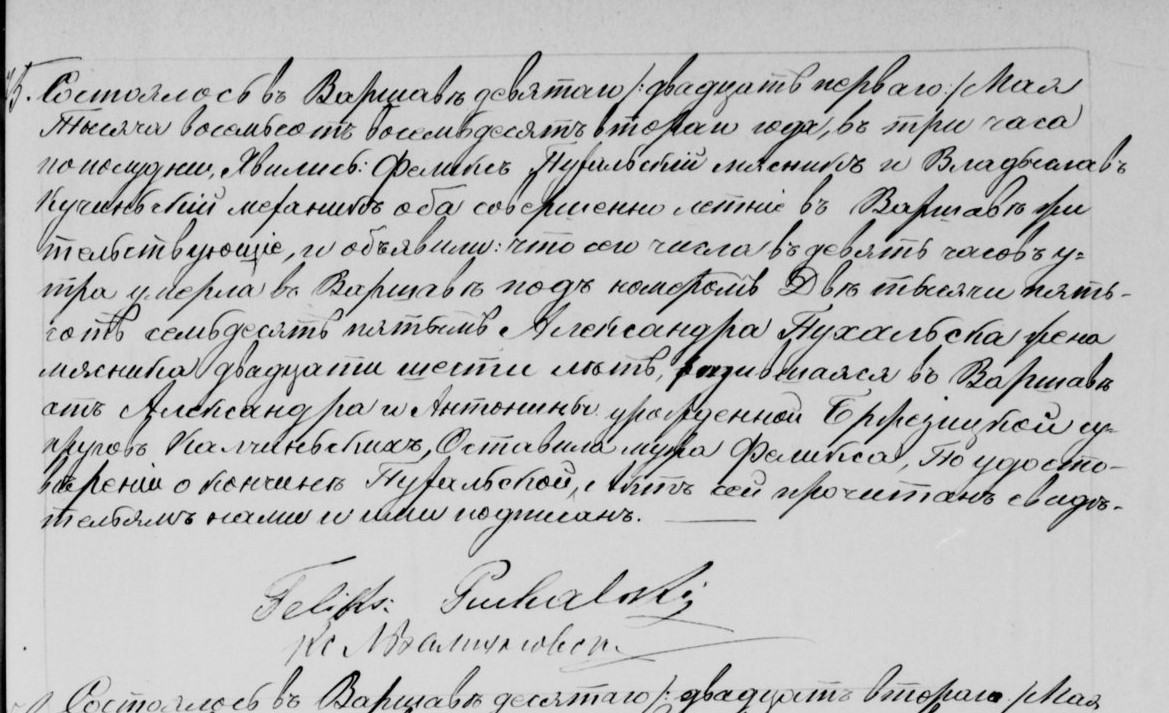 Состоялось въ Варшавѣ девятаго /: двадцать перваго :/ Мая
Тысяча восемьсотъ восемьдесятъ втораго года, въ три часа
по полудни, Явились: Феликсъ Пухальскій мясникъ и Владыславъ
Кучинскій механикъ оба совершеннолѣтніе въ Варшавѣ жи
тельствующіе, и объявили: что сего числа въ девять часовъ у=
тра умерла въ Варшавѣ подъ номеромъ Двѣ тысячи пять-
сотъ семьдесятъ пятымъ Александра Пухальска жена
мясника двадцати шести лѣтъ, родившаяся въ Варшавѣ
отъ Александра и Антонины урожденной су=
пруговъ Калчинскихъ, Оставила мужа Феликса, По удосто-
вѣреніи о кончинѣ Пухальской, Актъ сей прочитанъ свидѣ-
тельямъ нами и ими подписанъ.
Feliks: Puchalski
Состоялось въ Варшавѣ десятаго /: двадцать втораго /Мая